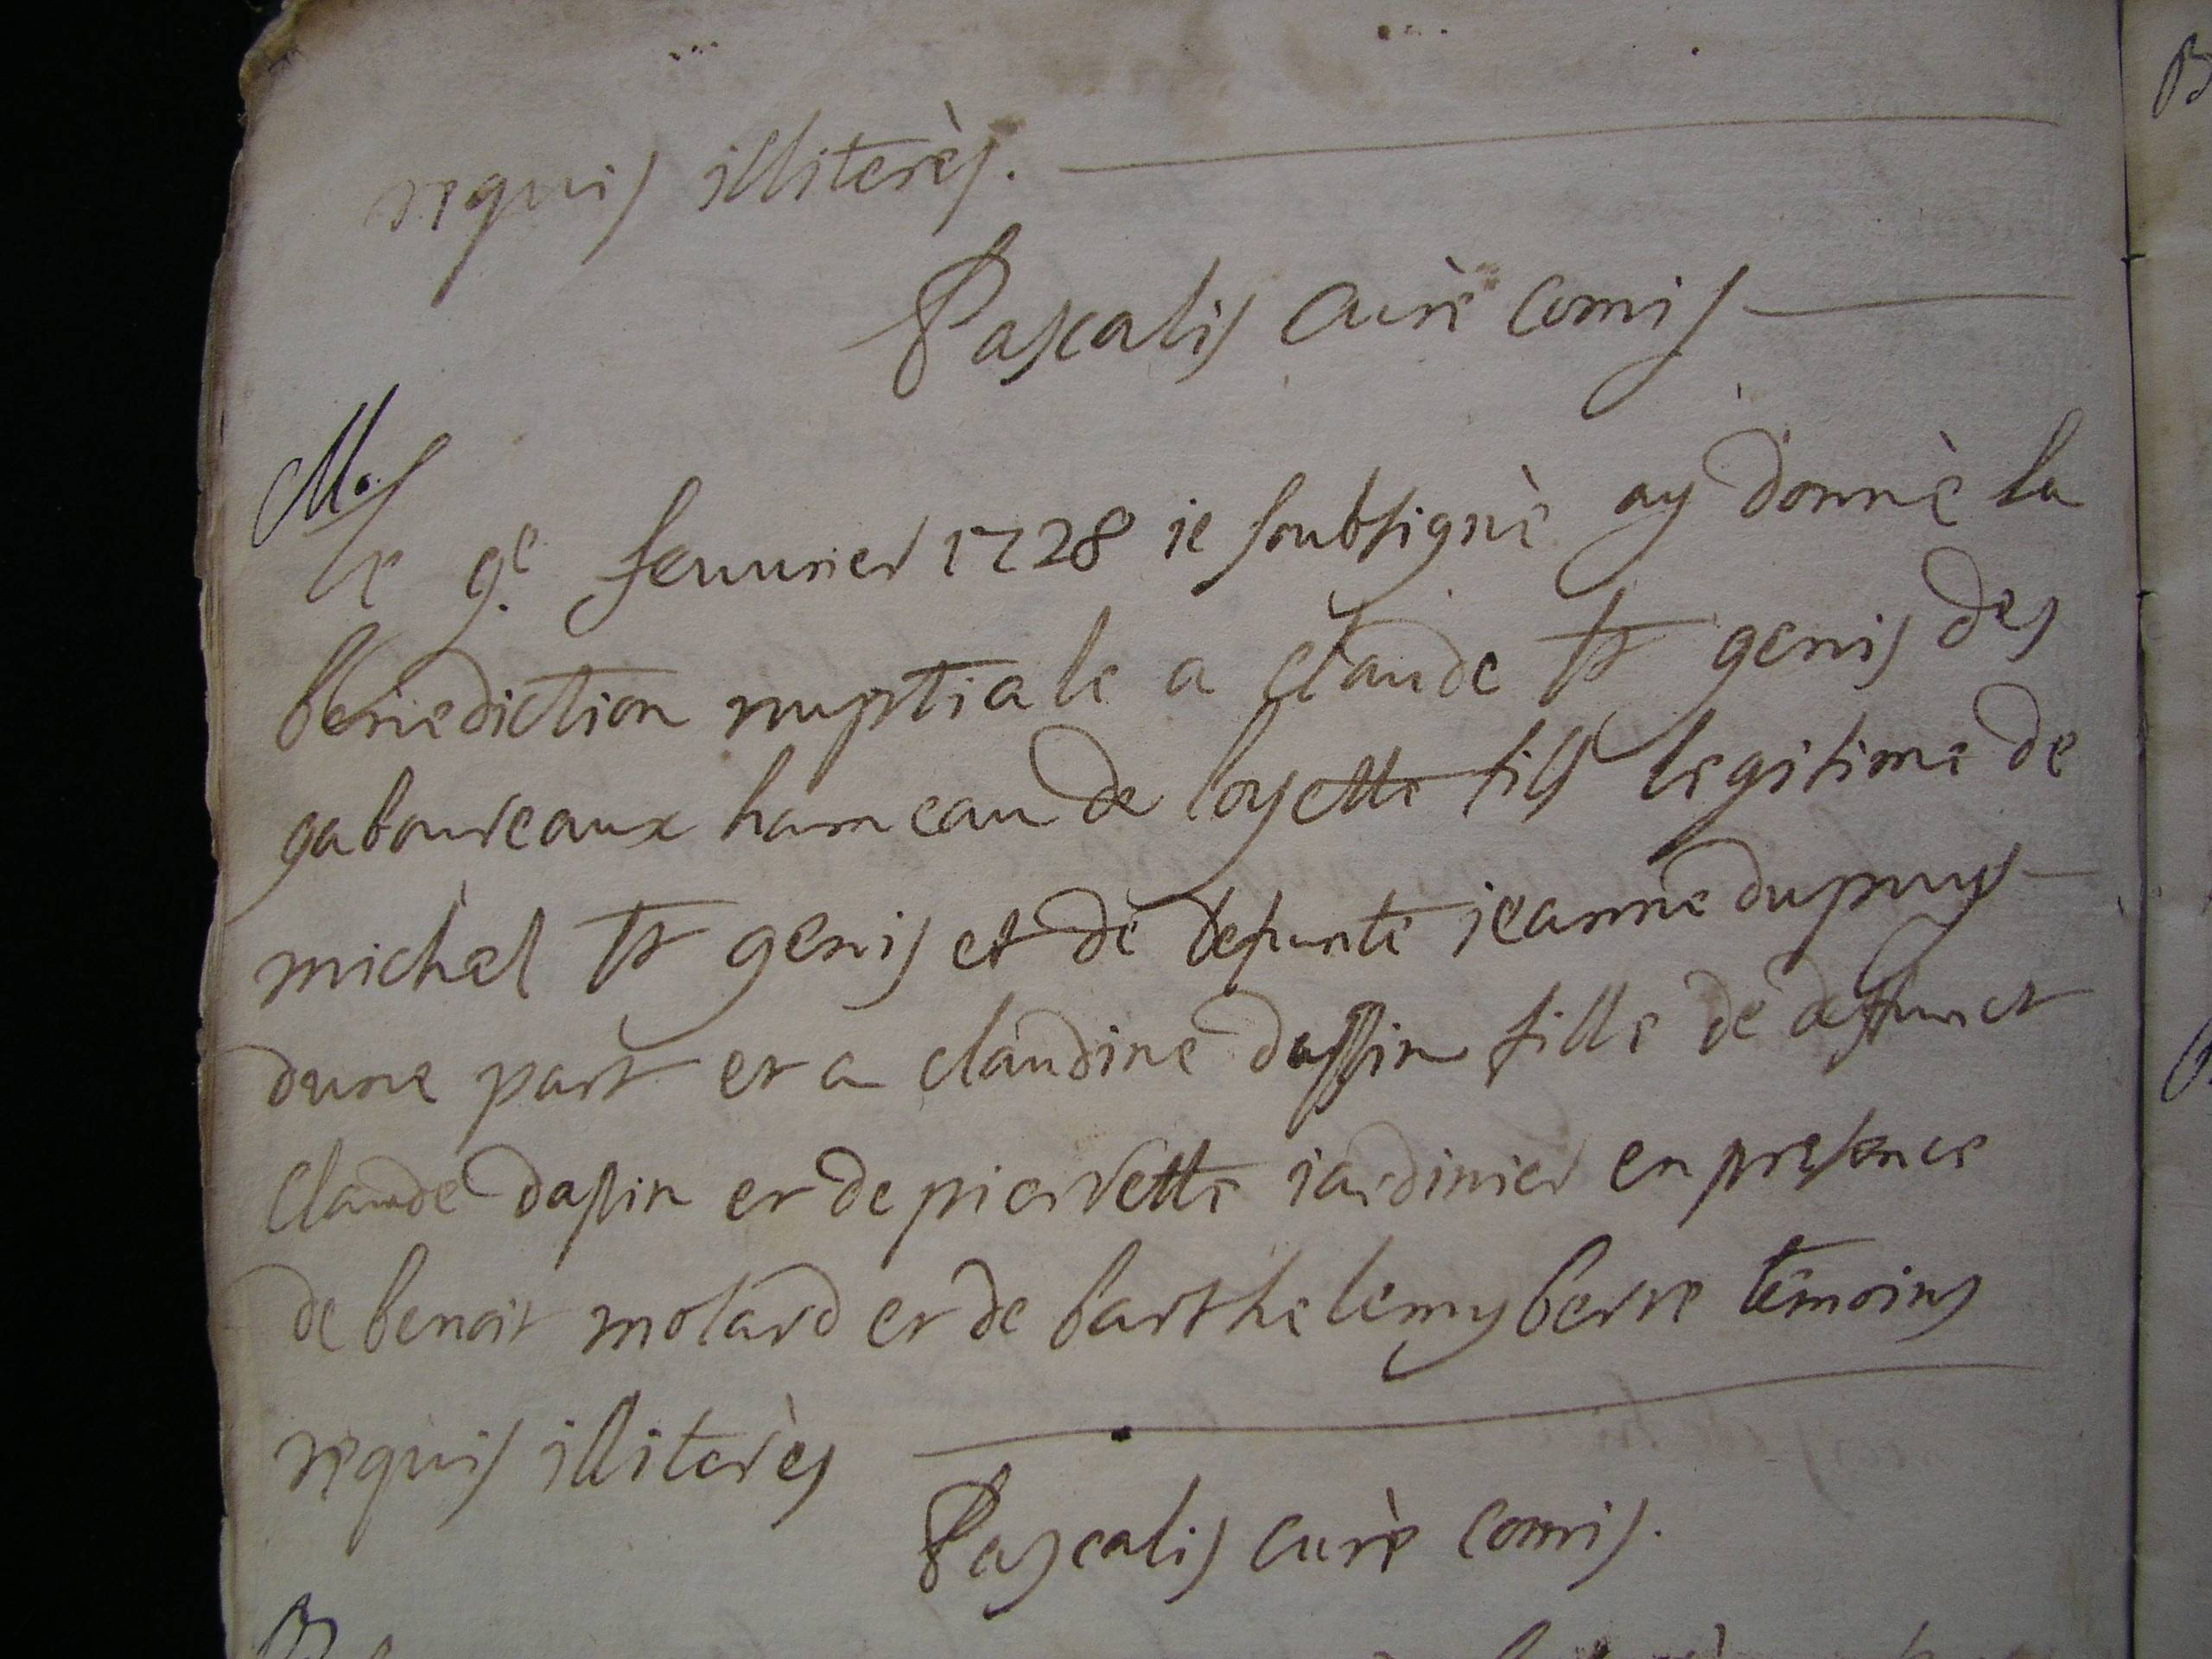 requis illiterès.
Pascalis Curè Comis
M.
le 9.e feuurier 1728 ie soubsignè ay donnè la
benediction nuptiale a claude st genis des
gaboureaux hameau de loyette fils legitime de
michel st genis et de defunte jeanne dupuys
dune part et a claudine dassin fille de deffunct
claude dassin et de pierrette iardinier en presence
de benoit molard et de barthelemy berre temoins
requis illiterès
Pascalis curè comis.
B
B